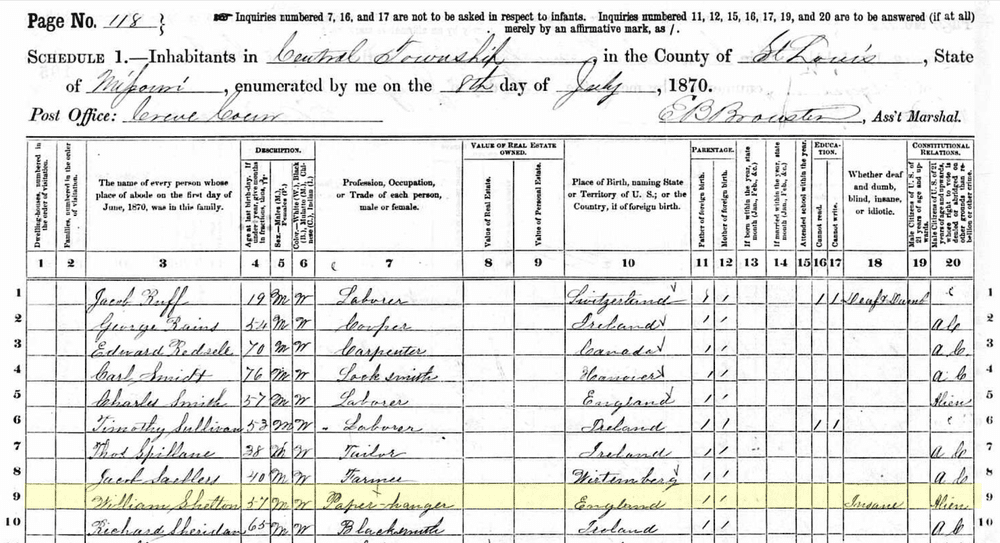 Page No. 118 }
☞ Inquiries numbered 7, 16, and 17 are not to be asked in respect to infants. Inquiries numbered 11, 12, 15, 16, 17, 19, and 20 are to be answered (if at all)
merely by an affirmative mark, as /.
SCHEDULE 1.—Inhabitants in Central Township, in the County of St Louis, State
of Missouri, enumerated by me on the 8th day of July, 1870.
Post Office: Creve Coeur
E B Brouster, Ass't Marshal.
Dwelling-houses, numbered in the order of visitation.
Families, numbered in the order of visitation.
The name of every person whose place of abode on the first day of June, 1870, was in this family.
DESCRIPTION.
Age at last birth-day. If under 1 year, give months in fractions, thus, 3/12
Sex.—Males (M.), Females (F.)
Color.—White (W.), Black (B.), Mulatto (M.), Chinese (C.), Indian (I.)
Profession, Occupation, or Trade of each person, male or female.
VALUE OF REAL ESTATE OWNED.
Value of Real Estate.
Value of Personal Estate.
Place of Birth, naming State or Territory of U. S.; or the Country, if of foreign birth.
PARENTAGE.
Father of foreign birth.
Mother of foreign birth.
If born within the year, state month (Jan., Feb., &c.)
If married within the year, state month (Jan., Feb., &c.)
Attended school within the year.
EDUCATION.
Cannot read.
Cannot write.
Whether deaf and dumb, blind, insane, or idiotic.
CONSTITUTIONAL RELATIONS.
Male Citizens of U. S. of 21 years of age and upwards.
Male Citizens of U. S. of 21 years of age and upwards, whose right to vote is denied or abridged on other grounds than rebellion or other crime.
1 2 3 4 5 6 7 8 9 10 11 12 13 14 15 16 17 18 19 20
1 Jacob Ruff 19 M W Laborer Switzerland / / 1 1 Deaf & Dumb 1
2 George Rains 54 M W Cooper Ireland / / a C 2
3 Edward Redsell 70 M W Carpenter Canada / / a C. 3
4 Carl Smidt 76 M W Lock smith Hanover / / a C 4
5 Charles Smith 57 M W Laborer England / / Alien 5
6 Timothy Sullivan 53 M W Laborer Ireland / / 1 1 6
7 Thos Spillane 38 M W Tailor Ireland / / a C 7
8 Jacob 40 M W Farmer Wirtemberg / / a C 8
9 William Shelton 57 M W Paper hanger England / / Insane Alien 9
10 Richard Sheridan 65 M W Blacksmith Ireland / / a C 10